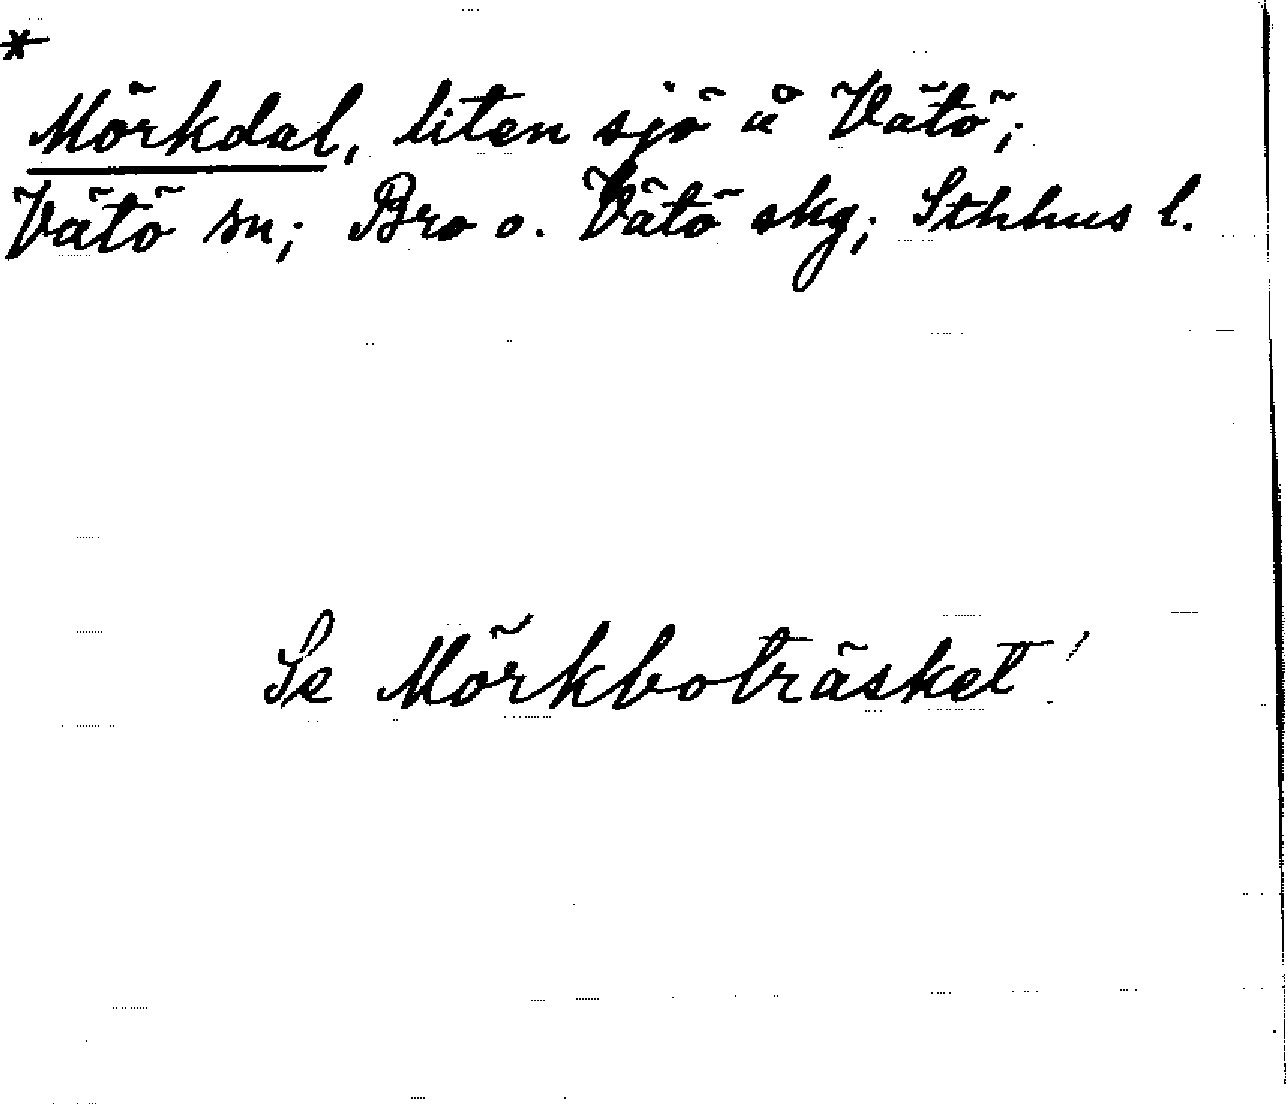 *
Mörkdal, liten sjö å Vätö;
Vätö sn; Bro o. Vätö skg; Sthhus l.
Se Mörkboträsket!